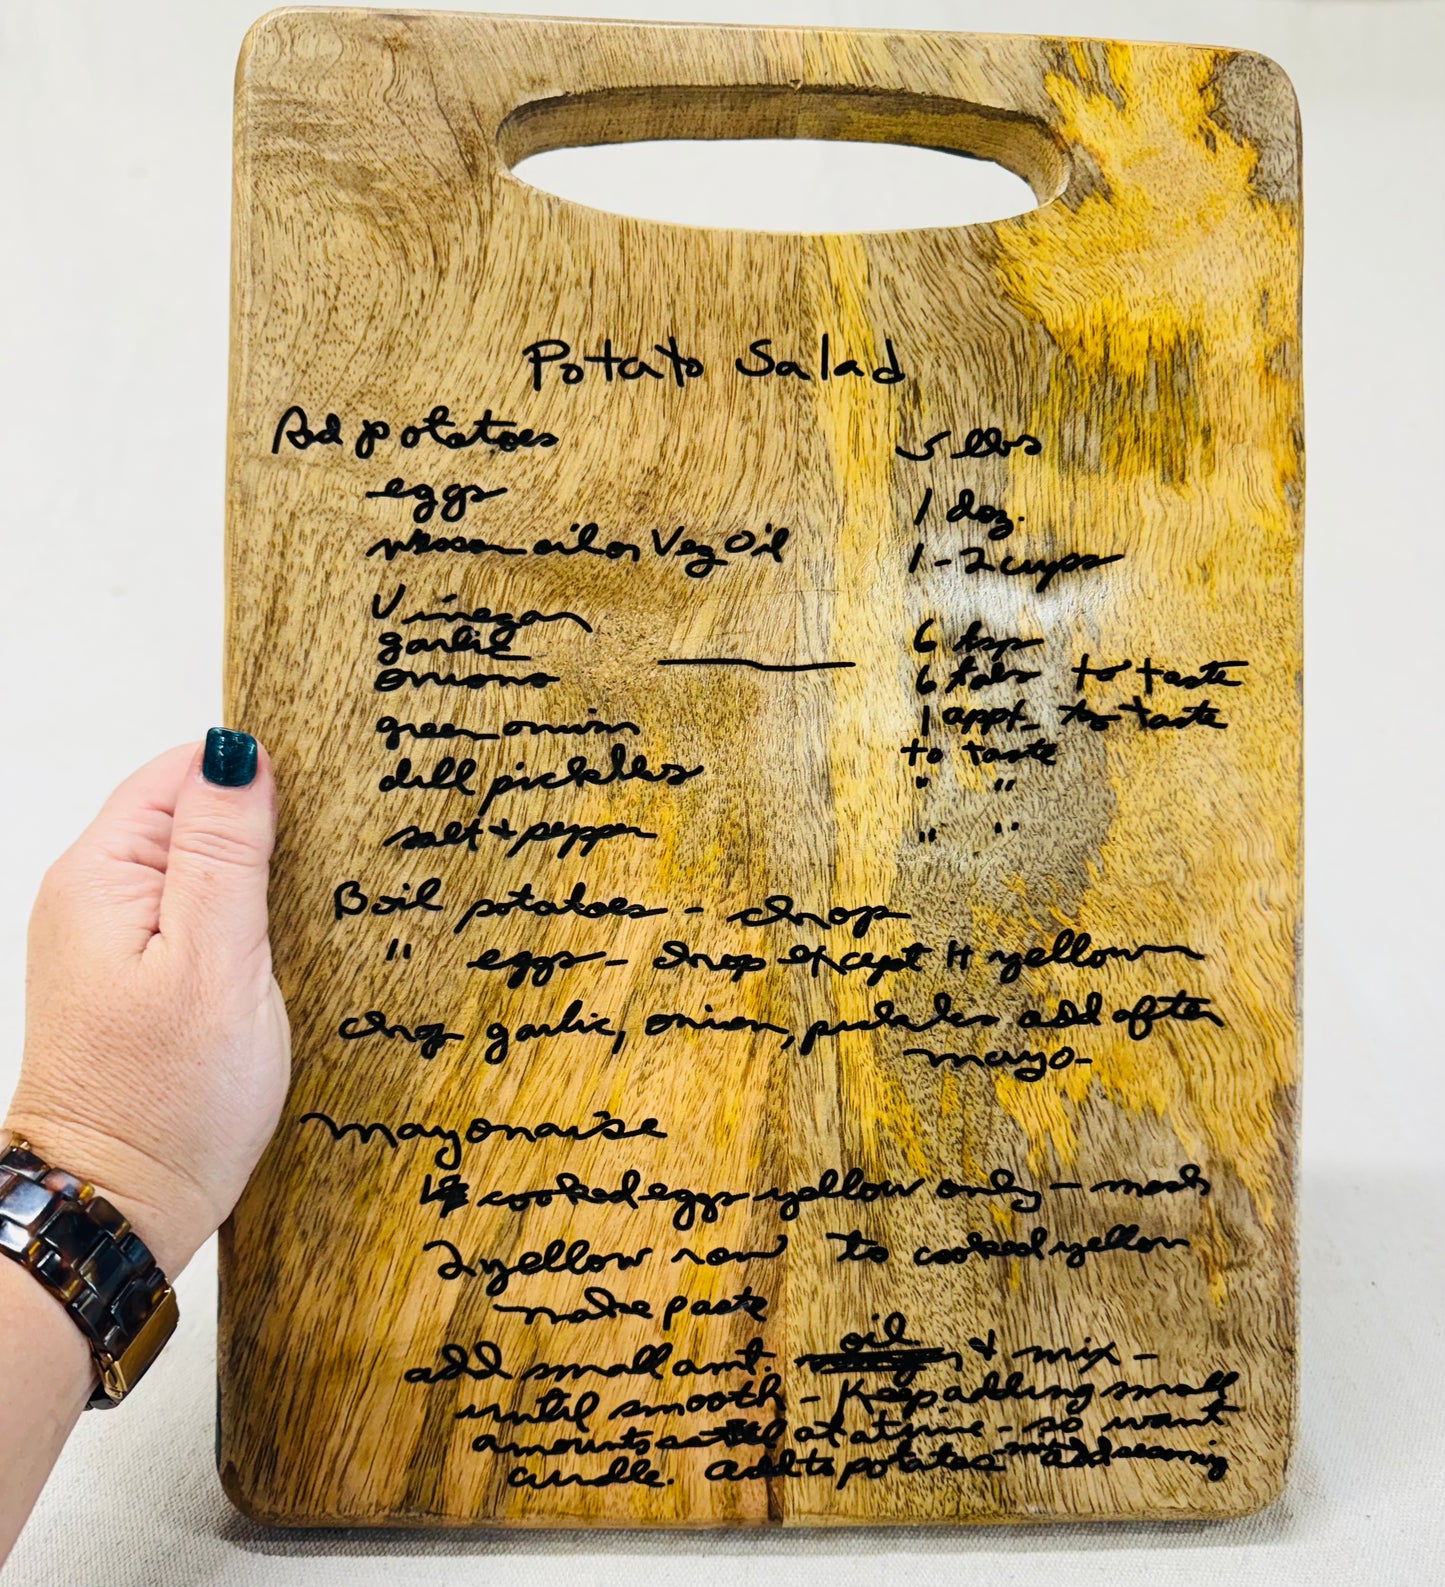 Potato Salad
Red potatoes 5 lbs
eggs 1 doz.
wesson oil or Veg Oil 1-2 cups
Vinegar 6 tsp
garlic 6 tabs to taste
onions 1 appx to taste
green onion to taste
dill pickles " "
salt + pepper " "
Boil potatoes - chop
" eggs - chop except 4 yellow
chop garlic, onion, pickles add after
mayo-
Mayonaise
cooked eggs yellow only - mash
2 yellow raw to cooked yellow
make paste
oil
add small amt. & mix -
until smooth - Keep adding small
amounts at a time - so want
curdle. add to potatoes mix add seasoning